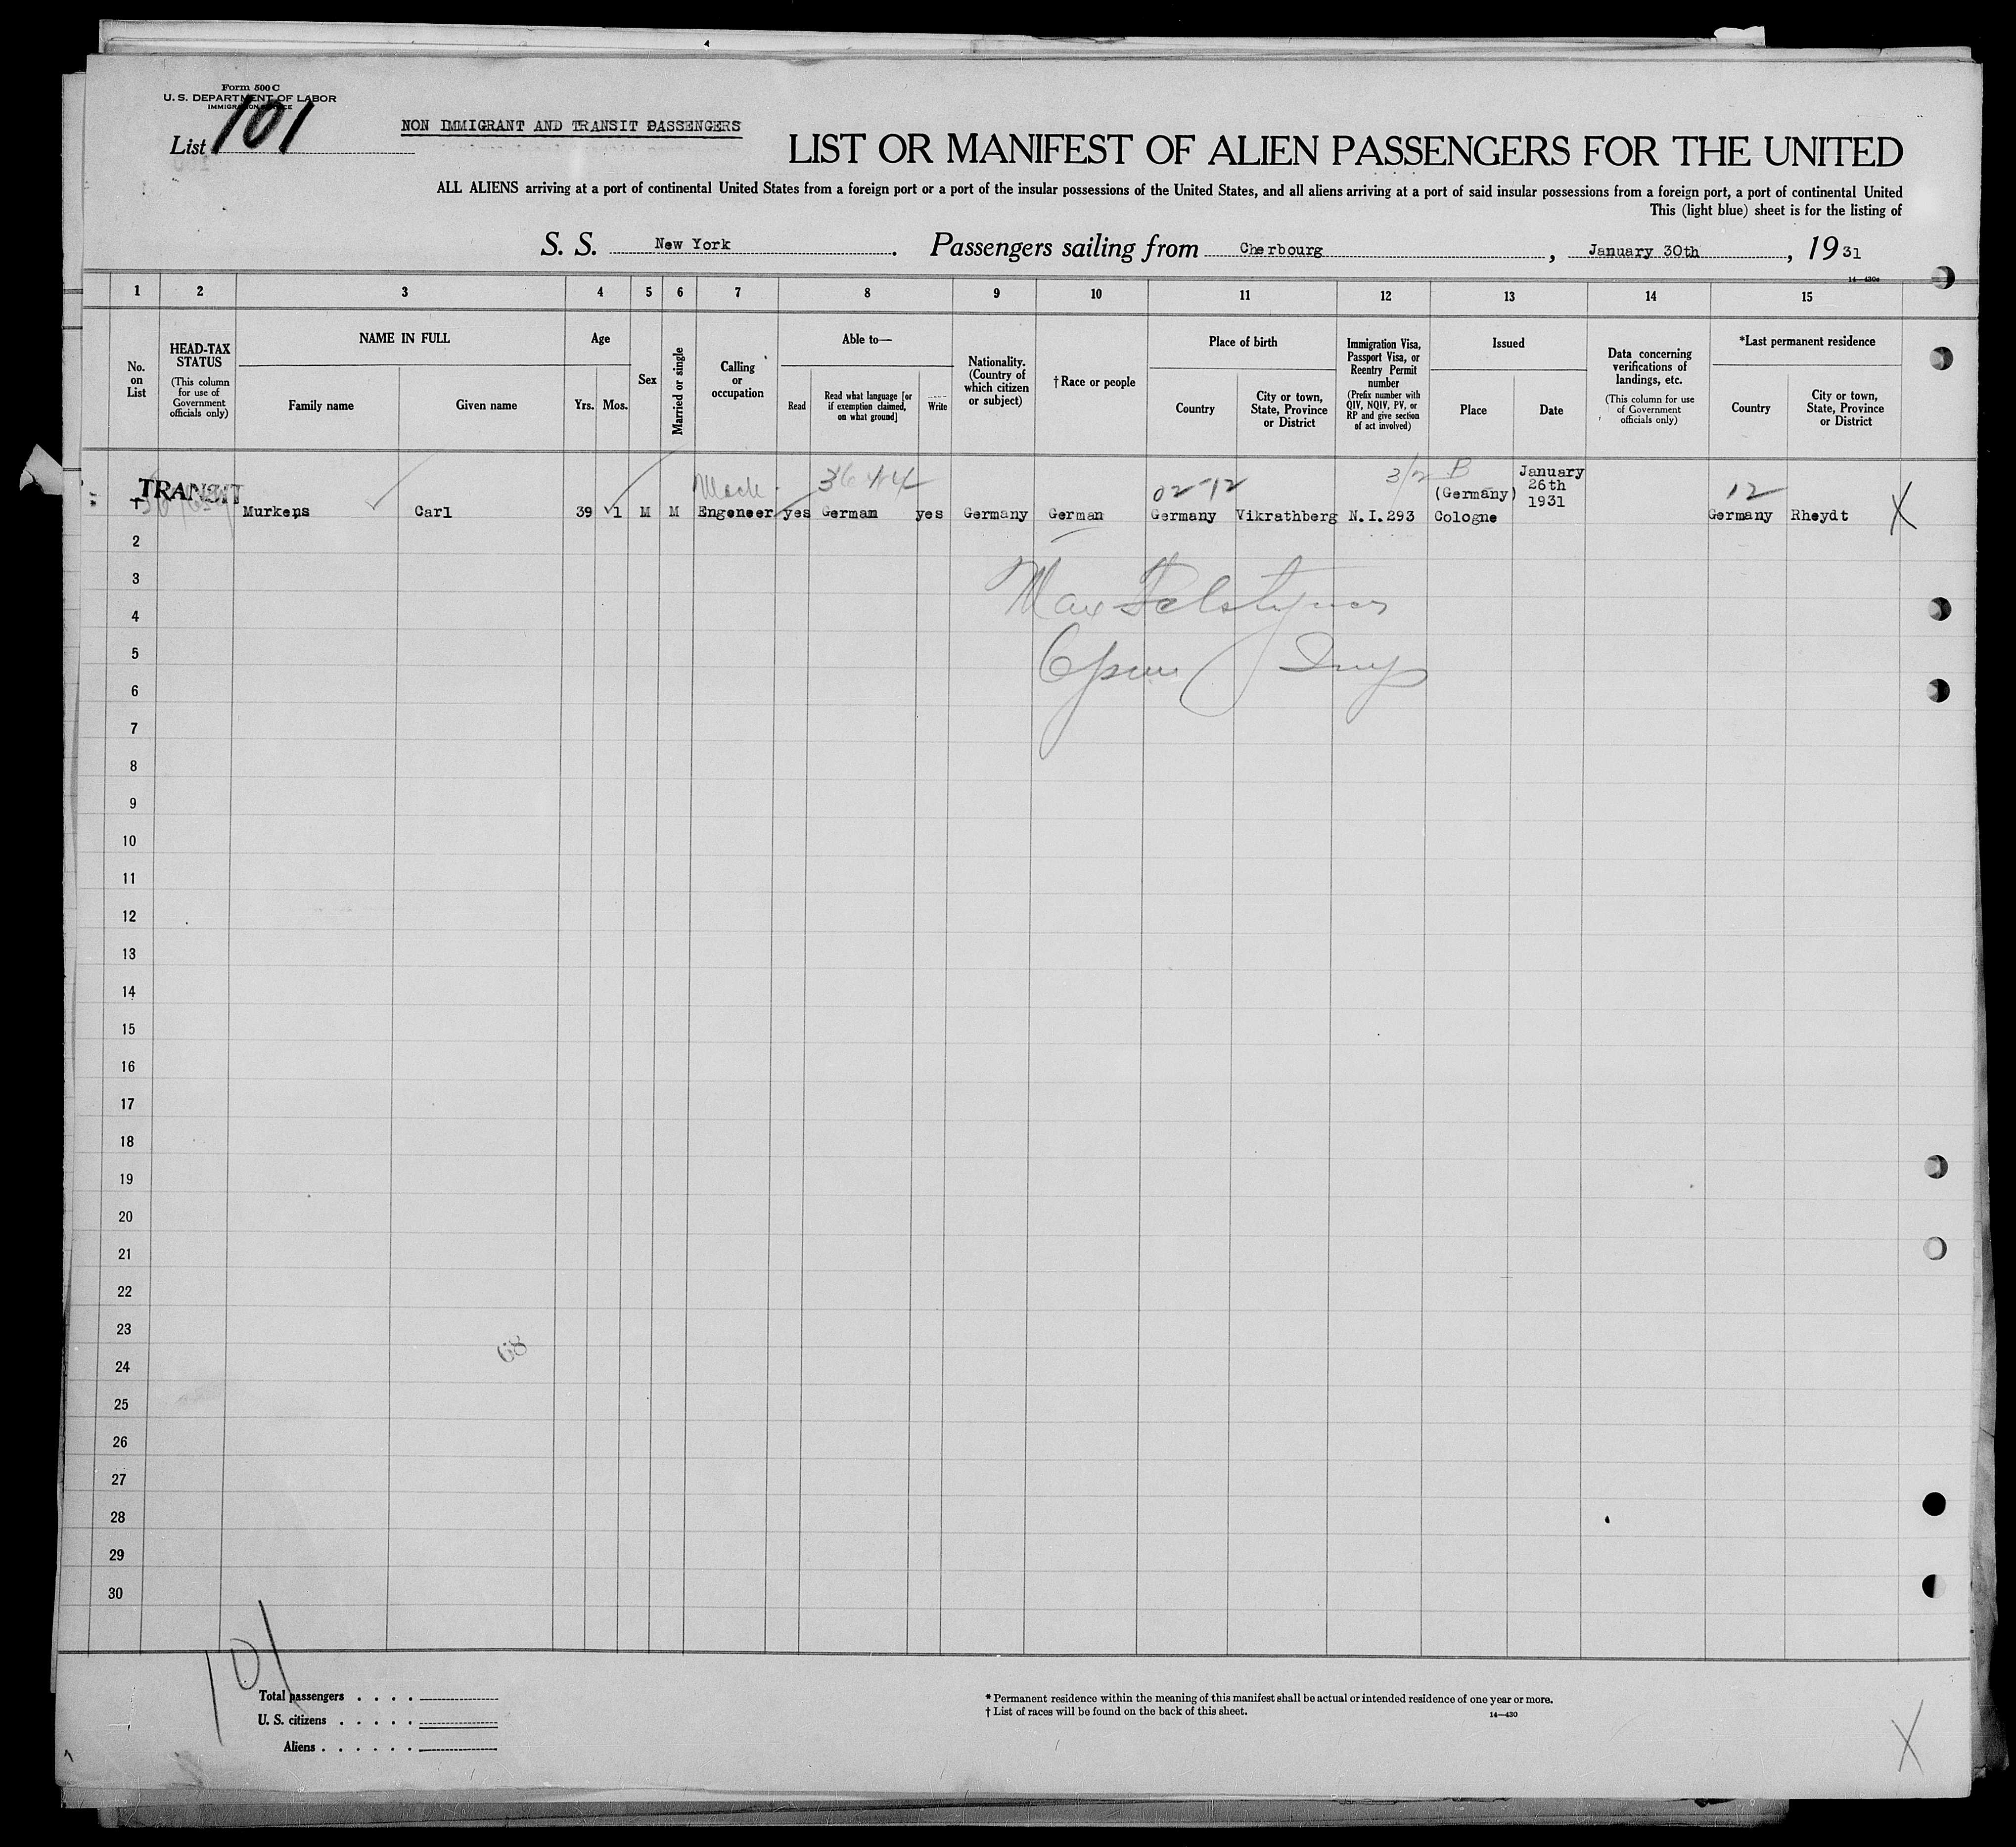 Form 500 C
U. S. DEPARTMENT OF LABOR
IMMIGRATION SERVICE
List 101
NON IMMIGRANT AND TRANSIT PASSENGERS
LIST OR MANIFEST OF ALIEN PASSENGERS FOR THE UNITED
ALL ALIENS arriving at a port of continental United States from a foreign port or a port of the insular possessions of the United States, and all aliens arriving at a port of said insular possessions from a foreign port, a port of continental United
This (light blue) sheet is for the listing of
S. S. New York. Passengers sailing from Cherbourg, January 30th, 1931
14—430c
1 2 3 4 5 6 7 8 9 10 11 12 13 14 15
No. on List
HEAD-TAX STATUS
(This column for use of Government officials only)
NAME IN FULL
Family name
Given name
Age
Yrs. Mos.
Sex
Married or single
Calling or occupation
Able to—
Read
Read what language [or if exemption claimed, on what ground]
Write
Nationality. (Country of which citizen or subject)
†Race or people
Place of birth
Country
City or town, State, Province or District
Immigration Visa, Passport Visa, or Reentry Permit number
(Prefix number with QIV, NQIV, PV, or RP and give section of act involved)
Issued
Place
Date
Data concerning verifications of landings, etc.
(This column for use of Government officials only)
*Last permanent residence
Country
City or town, State, Province or District
TRANSIT Mech. 02-12 3/2 B January 26th 1931 12
1 Murkens Carl 39 1 M M Engeneer yes German yes Germany German Germany Vikrathberg N.I.293 (Germany) Cologne Germany Rheydt X
2
3
Max
4
5
6
7
8
9
10
11
12
13
14
15
16
17
18
19
20
21
22
23
68
24
25
26
27
28
29
30
101
Total passengers
U. S. citizens
Aliens
* Permanent residence within the meaning of this manifest shall be actual or intended residence of one year or more.
† List of races will be found on the back of this sheet.
14—430
X